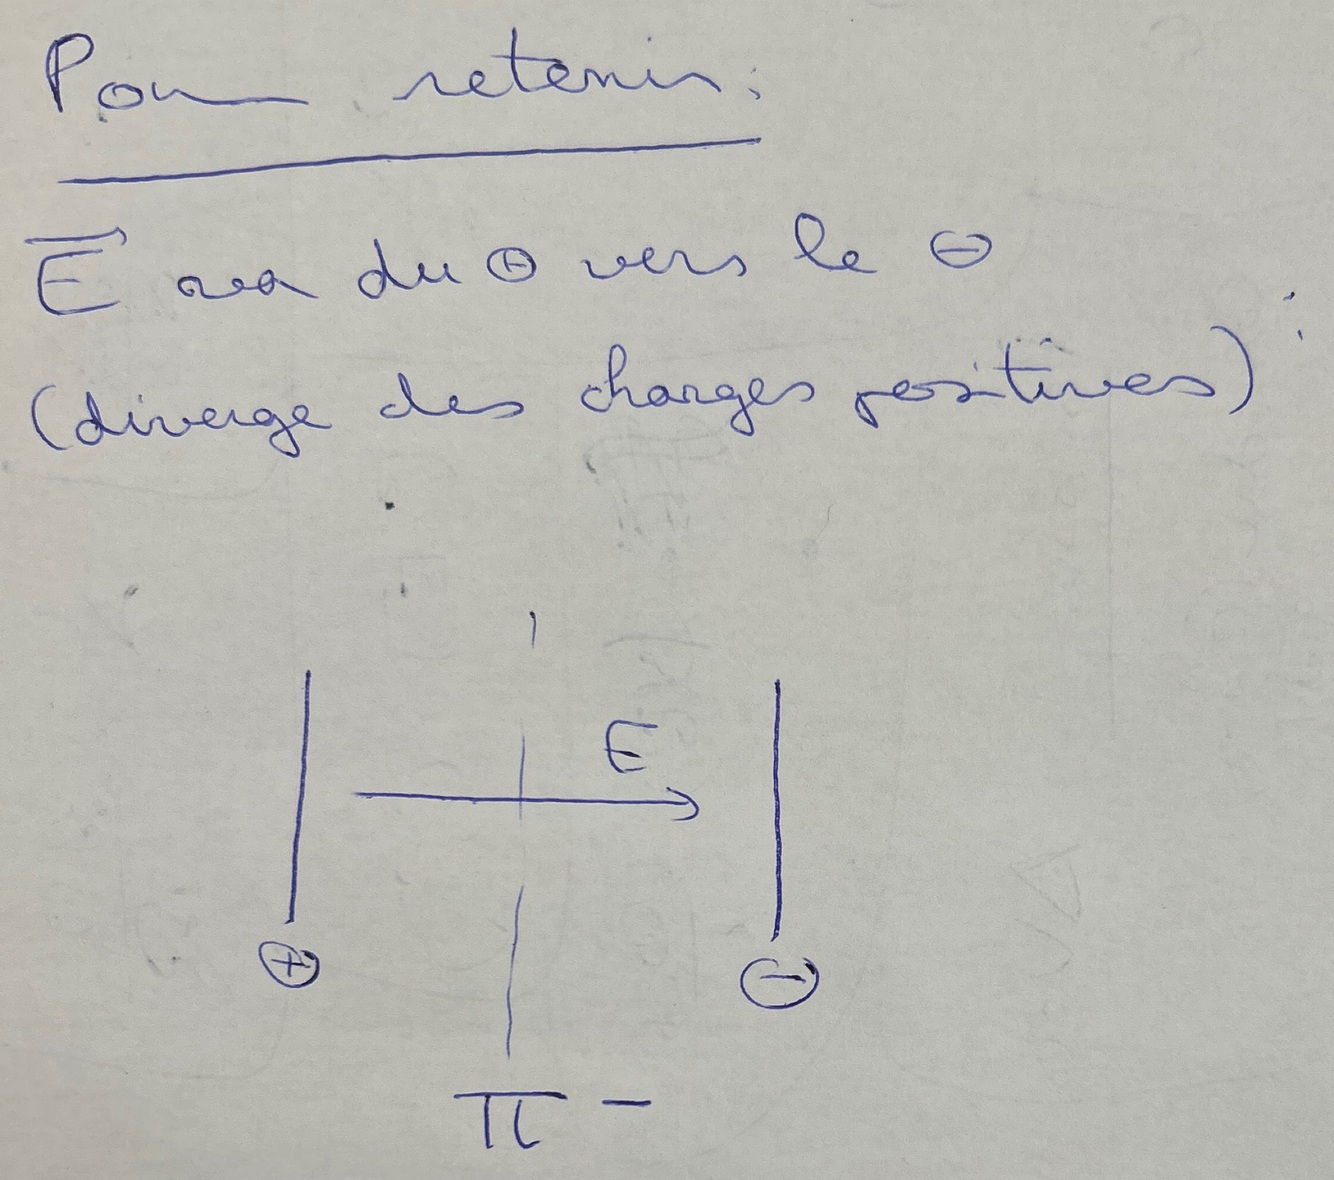 Pour retenir :
E⃗ va du ⊕ vers le ⊖
(diverge des charges positives) :
E
⊕ ⊖
π⁻